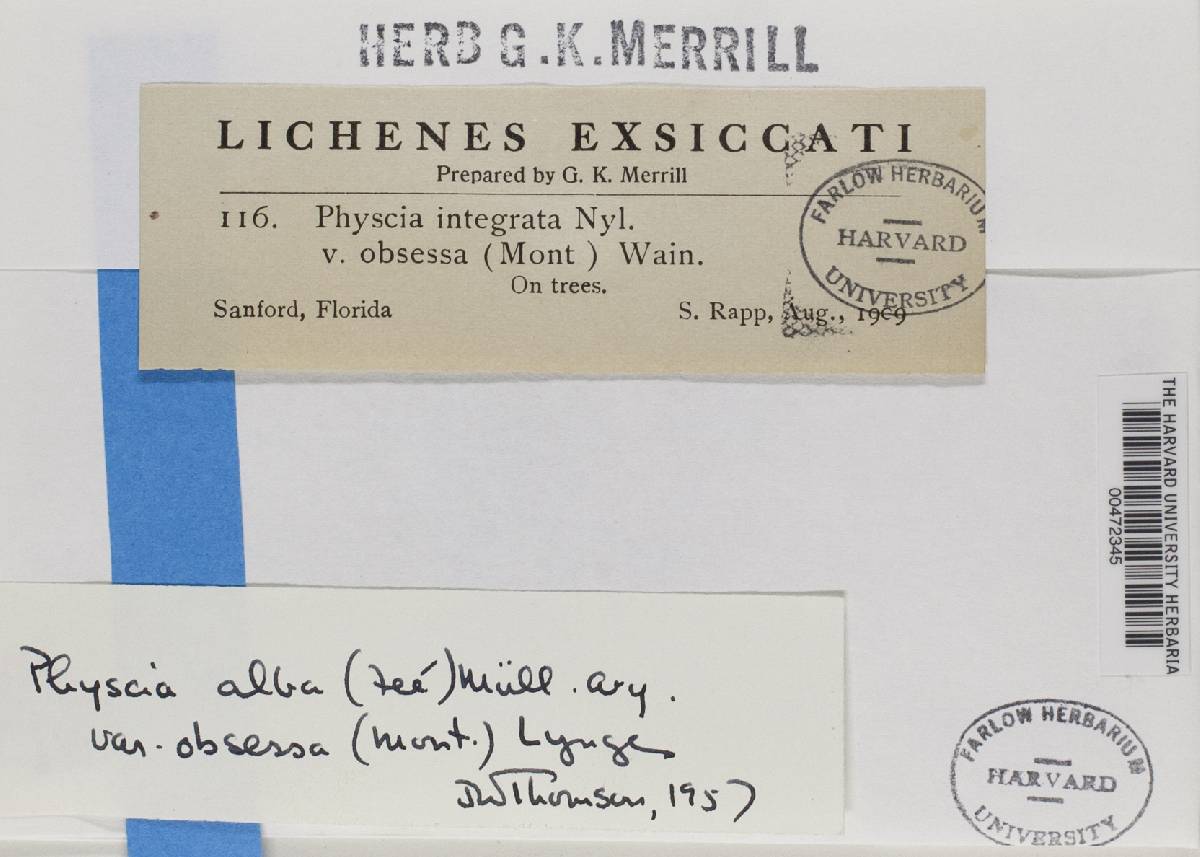 HERB G.K.MERRILL
LICHENES EXSICCATI
Prepared by G. K. Merrill
116. Physcia integrata Nyl.
v. obsessa (Mont ) Wain.
On trees.
Sanford, Florida S. Rapp, Aug., 1909
FARLOW HERBARIUM
HARVARD
UNIVERSITY
THE HARVARD UNIVERSITY HERBARIA
00472345
Physcia alba (Feé) Müll. Arg.
var. obsessa (Mont.) Lynge
JWThomson, 1957
FARLOW HERBARIUM
HARVARD
UNIVERSITY